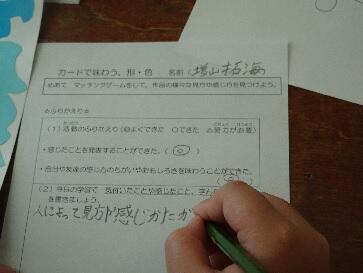 カードで味わう、形・色 名前(増山拓海
めあて マッチングゲームをして、作品の様々な見方や感じ方を見つけよう。
☆ふりかえり☆
(1)活動のふりかえり(◎よくできた ○できた △努力が必要)
・感じたことを発表することができた。(◎)
・自分や友達の感じ方のちがいやおもしろさを味わうことができた。
(◎)
(2)今日の学習で 気付いたことや感じたこと、学ん
を書きましょう。
人によって見方や感じかたが